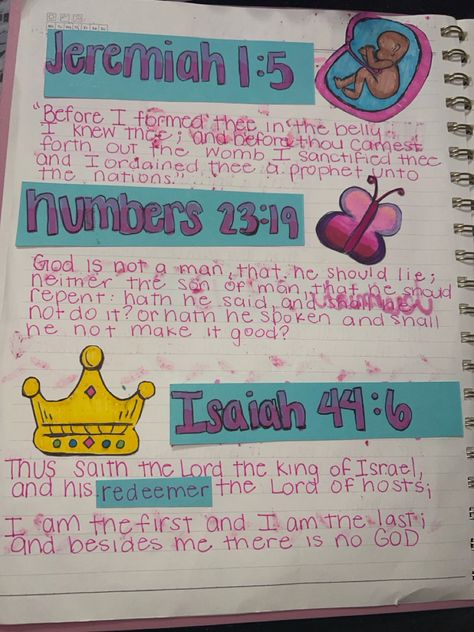 Jeremiah 1:5
"Before I formed thee in the belly
I knew thee; and before thou camest
forth out the womb I sanctified thee
and I ordained thee a prophet unto
the nations."
Numbers 23:19
God is not a man, that he should lie;
neither the son of man, that he should
repent: hath he said, and shall he
not do it? or hath he spoken and shall
he not make it good?
Isaiah 44:6
Thus saith the Lord the king of Israel,
and his redeemer the Lord of hosts;
I am the first and I am the last;
and besides me there is no GOD